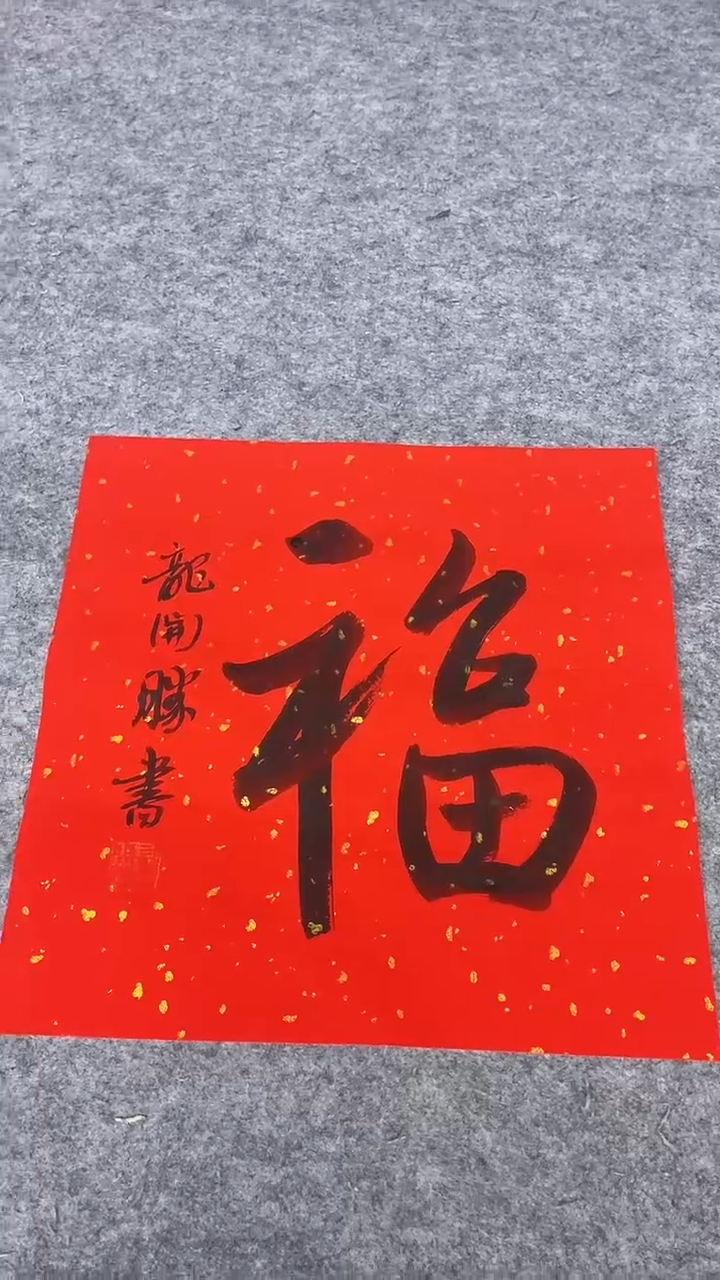 福
龍開勝書